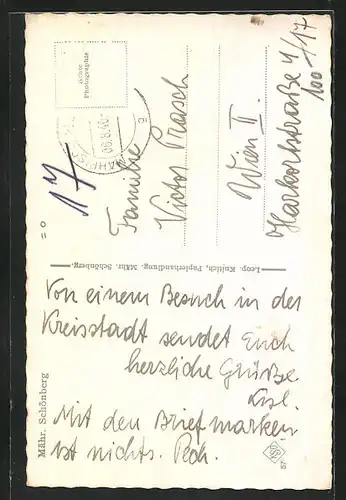 Echte
Photographie
06.8.40
17
Familie
Victor Prasch
Wien II.
Harkortstraße 4/17
100
Leop. Knittich, Papierhandlung, Mähr. Schönberg.
Von einem Besuch in der
Kreisstadt sendet Euch
herzliche Grüße
Lisl.
Mit den Briefmarken
ist nichts. Pech.
Mähr. Schönberg
57